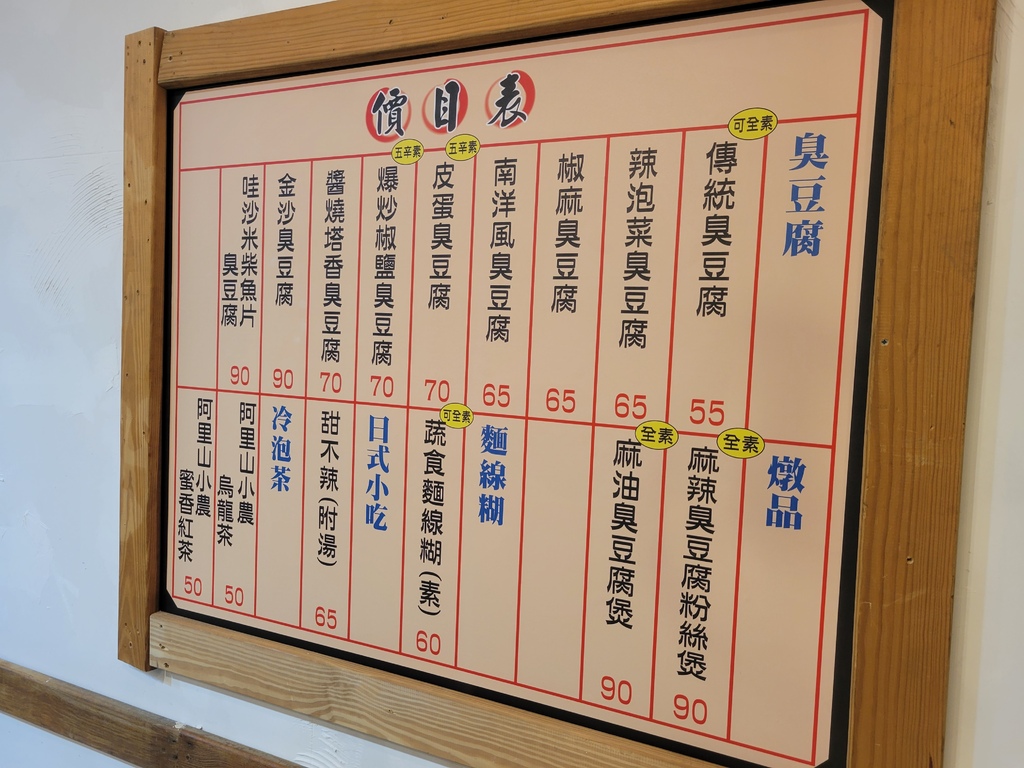 價目表
臭豆腐
可全素
傳統臭豆腐
55
辣泡菜臭豆腐
65
椒麻臭豆腐
65
南洋風臭豆腐
65
五辛素
皮蛋臭豆腐
70
五辛素
爆炒椒鹽臭豆腐
70
醬燒塔香臭豆腐
70
金沙臭豆腐
90
哇沙米柴魚片
臭豆腐
90
燉品
全素
麻辣臭豆腐粉絲煲
90
全素
麻油臭豆腐煲
90
麵線糊
可全素
蔬食麵線糊(素)
60
日式小吃
甜不辣(附湯)
65
冷泡茶
阿里山小農
烏龍茶
50
阿里山小農
蜜香紅茶
50